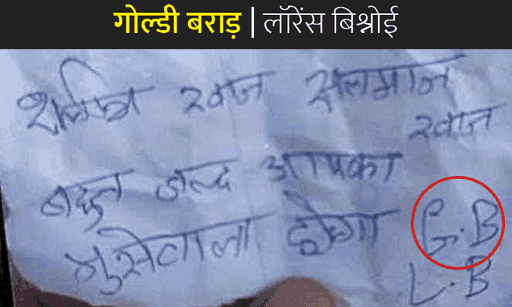 गोल्डी बराड़ | लॉरेंस बिश्नोई
खान सलमान
खान
बहुत जल्द आपका
मुसेवाला होगा G.B
L.B